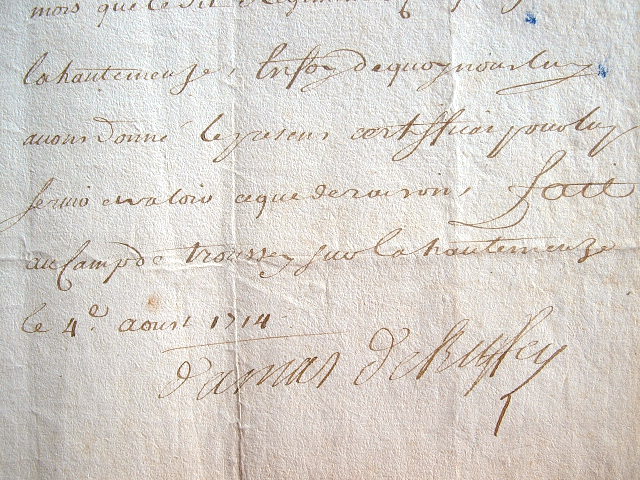 mois que le dit Regiment
la haute meuse, En foy de quoy nous luy
avons donné le presens certifficat pour luy
servir et valoir ce que de raison, Fait
au Camp de troussey sur la haute meuze
le 4e aoust 1714
damas de Ruffey